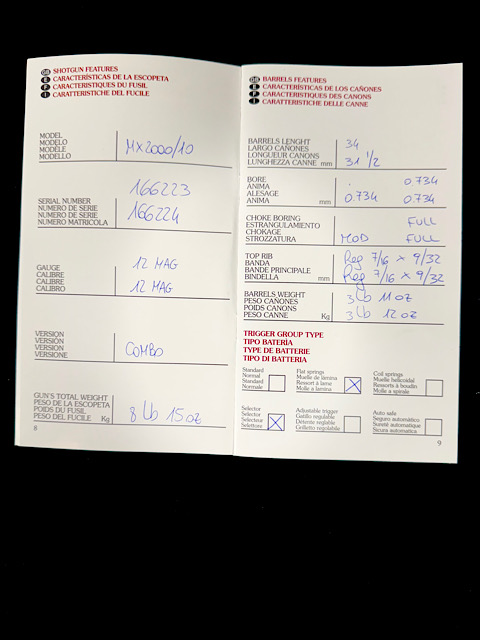 GB SHOTGUN FEATURES
E CARACTERÍSTICAS DE LA ESCOPETA
F CARACTERISTIQUES DU FUSIL
I CARATTERISTICHE DEL FUCILE
MODEL
MODELO
MODÈLE
MODELLO
MX2000/10
166223
SERIAL NUMBER
NUMERO DE SERIE
NUMERO DE SERIE
NUMERO MATRICOLA
166224
GAUGE
CALIBRE
CALIBRE
CALIBRO
12 MAG
12 MAG
VERSION
VERSIÓN
VERSION
VERSIONE
COMBO
GUN'S TOTAL WEIGHT
PESO DE LA ESCOPETA
POIDS DU FUSIL
PESO DEL FUCILE Kg
8 Lb 15 oz
8
GB BARRELS FEATURES
E CARACTERÍSTICAS DE LOS CAÑONES
F CARACTERISTIQUES DES CANONS
I CARATTERISTICHE DELLE CANNE
BARRELS LENGHT
LARGO CAÑONES
LONGUEUR CANONS
LUNGHEZZA CANNE mm
34
31 1/2
BORE
ANIMA
ALESAGE
ANIMA mm
0.734
0.734 0.734
CHOKE BORING
ESTRANGULAMIENTO
CHOKAGE
STROZZATURA
FULL
MOD FULL
TOP RIB
BANDA
BANDE PRINCIPALE
BINDELLA mm
Reg 7/16 x 9/32
Reg 7/16 x 9/32
BARRELS WEIGHT
PESO CAÑONES
POIDS CANONS
PESO CANNE Kg
3 Lb 11 oz
3 Lb 12 oz
TRIGGER GROUP TYPE
TIPO BATERÍA
TYPE DE BATTERIE
TIPO DI BATTERIA
Standard
Normal
Standard
Normale
Flat springs
Muelle de lámina
Ressort à lame
Molle a lamina
X
Coil springs
Muelle helicoidal
Ressorts à boudin
Molle a spirale
Selector
Selector
Selecteur
Selettore
X
Adjustable trigger
Gatillo regulable
Detente reglable
Grilletto regolabile
Auto safe
Seguro automático
Sureté automatique
Sicura automatica
9